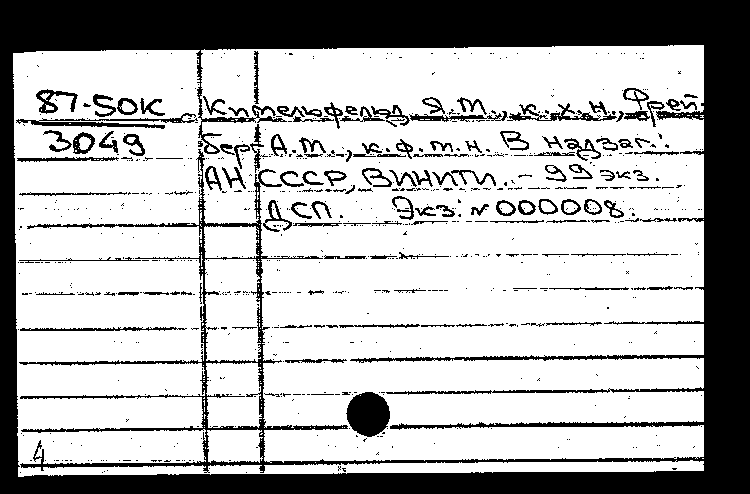 87-50К Кительфельд, Я.М., к.х.н., Фрей-
3049 берг А.М., к.ф.-м.н. В надзаг.:
АН СССР, ВИНИТИ. - 99 экз.
ДСП. Экз. № 000008.
4